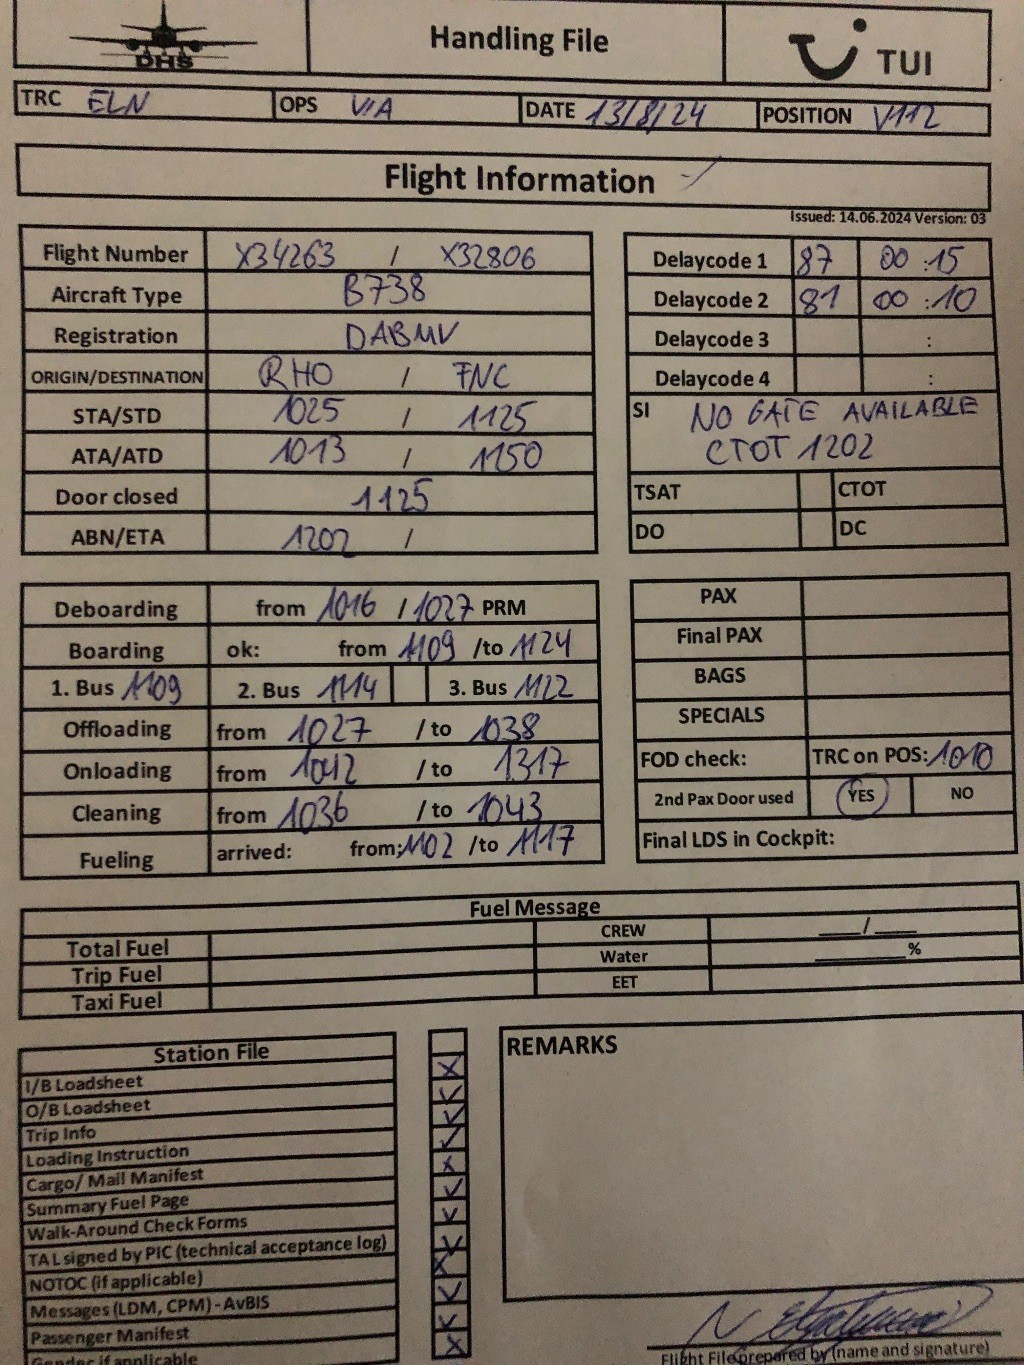 DHS
Handling File
TUI
TRC ELN OPS VIA DATE 13/8/24 POSITION V112
Flight Information
Issued: 14.06.2024 Version: 03
Flight Number X34263 / X32806
Aircraft Type B738
Registration DABMV
ORIGIN/DESTINATION RHO / FNC
STA/STD 1025 / 1125
ATA/ATD 1013 / 1150
Door closed 1125
ABN/ETA 1202 /
Delaycode 1 87 00 :15
Delaycode 2 81 00 :10
Delaycode 3 :
Delaycode 4 :
SI NO GATE AVAILABLE
CTOT 1202
TSAT CTOT
DO DC
Deboarding from 1016 / 1027 PRM
Boarding ok: from 1109 /to 1124
1. Bus 1109 2. Bus 1114 3. Bus 1122
Offloading from 1027 / to 1038
Onloading from 1042 / to 1317
Cleaning from 1036 / to 1043
Fueling arrived: from: 1102 /to 1117
PAX
Final PAX
BAGS
SPECIALS
FOD check: TRC on POS: 1010
2nd Pax Door used YES NO
Final LDS in Cockpit:
Fuel Message
Total Fuel CREW ___/___
Trip Fuel Water ______%
Taxi Fuel EET
Station File
I/B Loadsheet
O/B Loadsheet
Trip Info
Loading Instruction
Cargo/ Mail Manifest
Summary Fuel Page
Walk-Around Check Forms
TAL signed by PIC (technical acceptance log)
NOTOC (if applicable)
Messages (LDM, CPM) - AvBIS
Passenger Manifest
Gender if applicable
REMARKS
Flight File prepared by (name and signature)